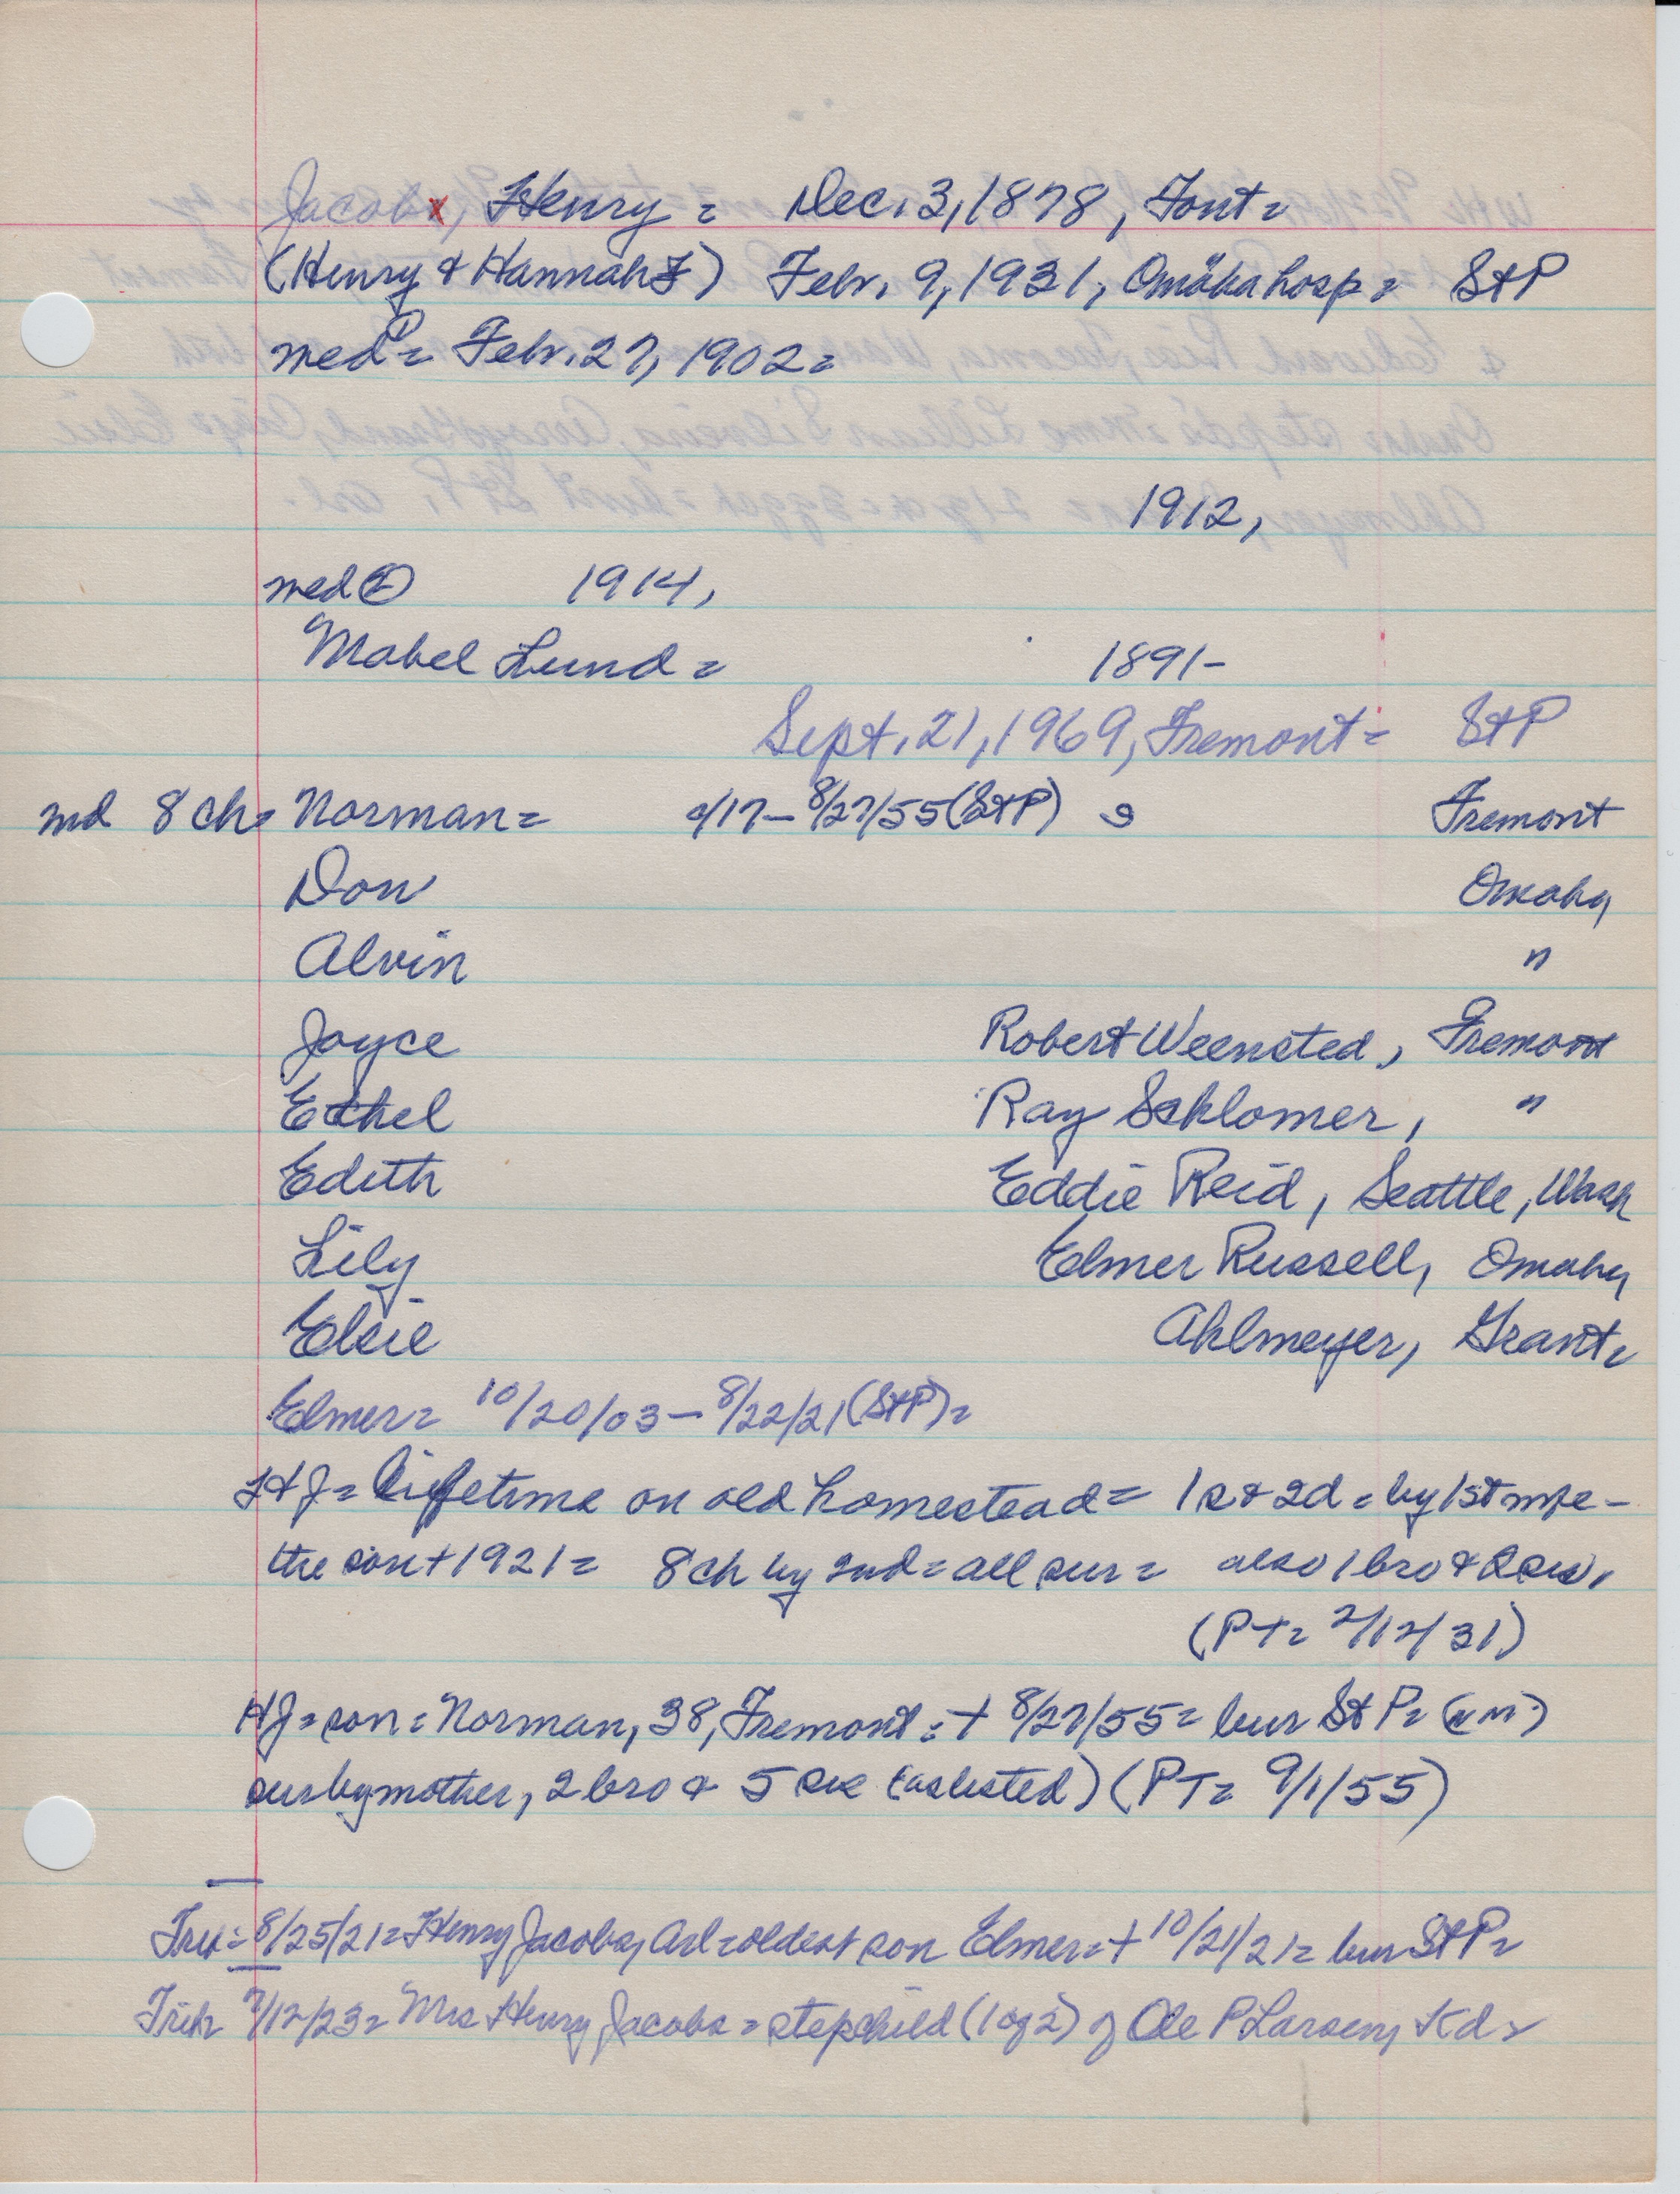 Jacobs, Henry = Dec. 3, 1878, Font=
(Henry & Hannah F) Febr. 9, 1931, Omaha hosp = St P
med① = Febr. 27, 1902 =
1912,
med② 1914,
Mabel Lund = 1891-
Sept. 21, 1969, Fremont = St P
md 8 ch = Norman = /17 – 8/27/55 (St P) Fremont
Don Omaha
Alvin "
Joyce Robert Weensted, Fremont
Ethel Ray Schlomer, "
Edith Eddie Reid, Seattle, Wash
Lily Elmer Russell, Omaha
Elsie Ahlmeyer, Grant=
Elmer = 10/20/03 – 8/22/21 (St P) =
HJ = Lifetime on old homestead = 1 s & 2 d = by 1st mge –
the son + 1921 = 8 ch by 2nd = all sur = also 1 bro & sis,
(PT = 2/12/31)
HJ = son = Norman, 38, Fremont = + 8/27/55 = bur St P = (um)
sur by mother, 2 bro & 5 sis (as listed) (PT = 9/1/55)
8/25/21 = Henry Jacobs, Arl = oldest son Elmer = + 10/21/21 = bur St P =
7/12/23 = Mrs Henry Jacobs = stepchild (1 of 2) of Ole P Larsen, Kd =